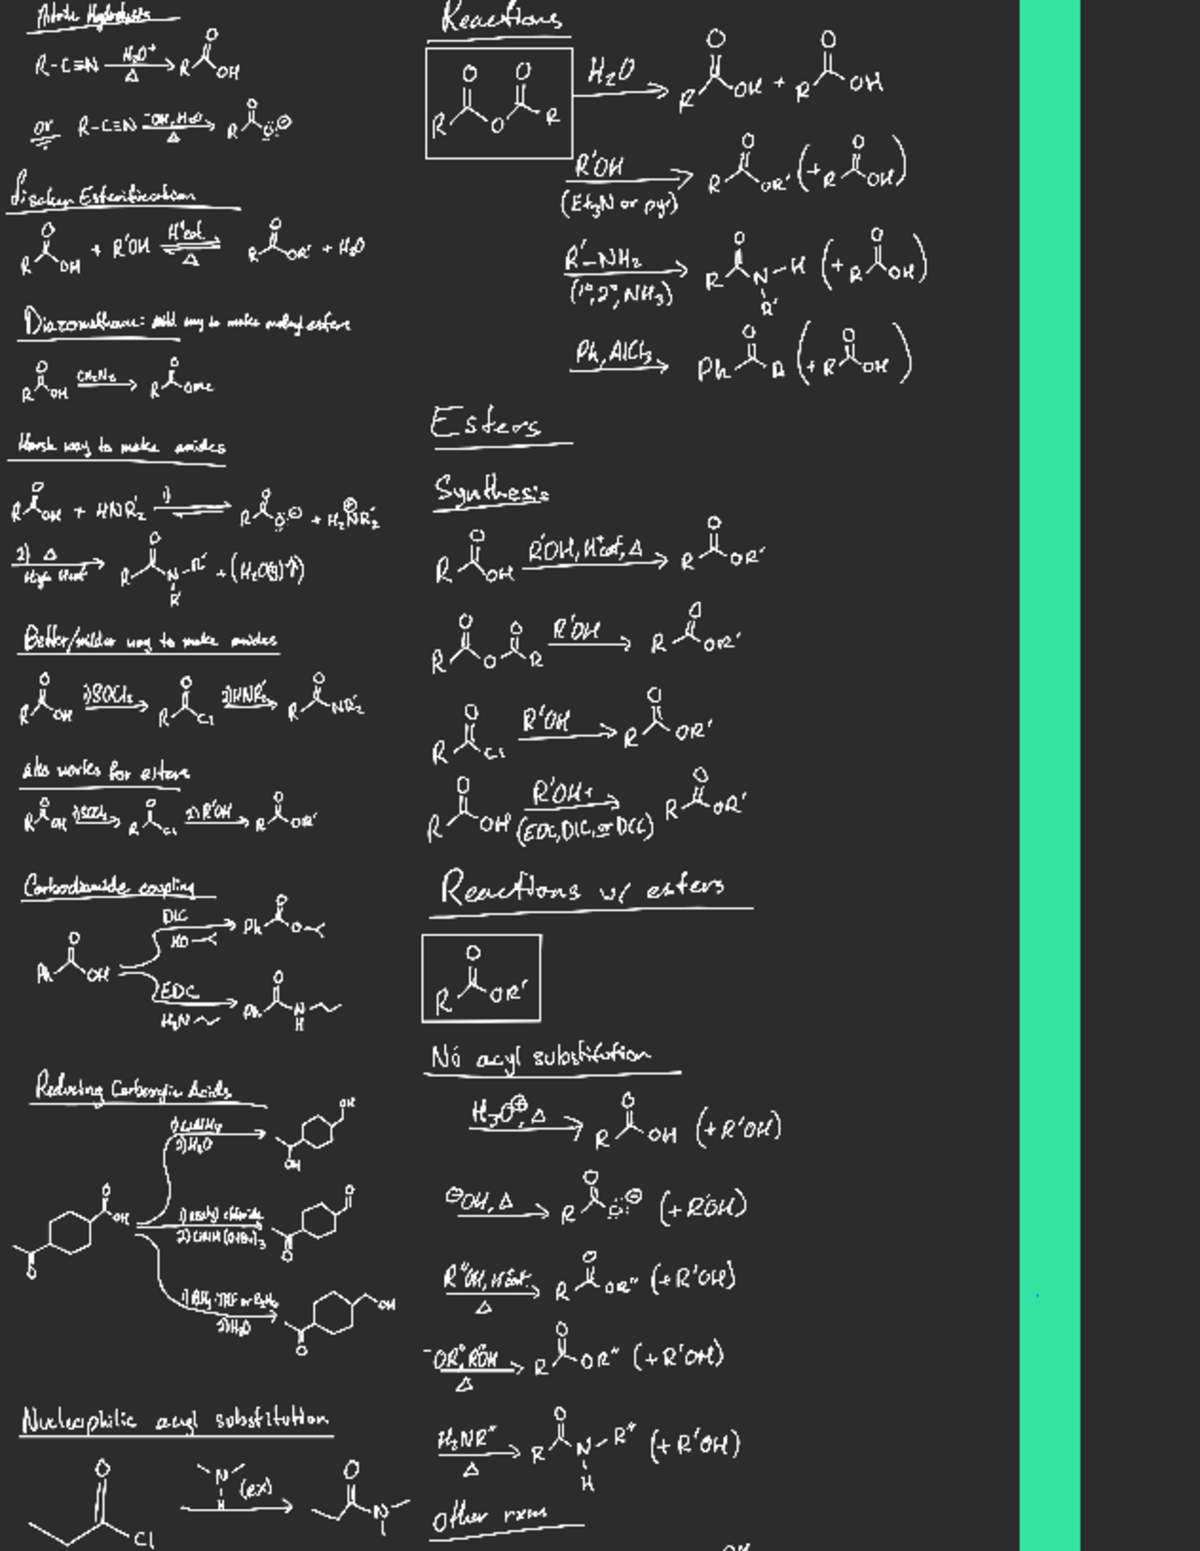 Nitrile Hydrolysis
R-C≡N H₃O⁺ Δ R O OH
or R-C≡N ⁻OH, H₂O Δ R O O ⊖
Fischer Esterification
R O OH + R'OH H⁺cat. Δ R O OR' + H₂O
Diazomethane: mild way to make methyl esters
R O OH CH₂N₂ R O OMe
Harsh way to make amides
R O OH + HNR'₂ 1) R O O ⊖ + H₂NR'₂ ⊕
2) Δ High Heat R O N-R' R' + (H₂O(g)↑)
Better/milder way to make amides
R O OH 1)SOCl₂ R O Cl 2)HNR'₂ R O NR'₂
also works for esters
R O OH 1)SOCl₂ R O Cl 2)R'OH R O OR'
Carbodiimide coupling
Ph O OH
DIC HO Ph O O
EDC H₂N Ph O N H
Reducing Carboxylic Acids
1)LiAlH₄ 2)H₂O OH OH
O OH O
1) 2) LiAlH(OtBu)₃ O O
1)BH₃·THF or B₂H₆ 2)H₂O OH O
Nucleophilic acyl substitution
O Cl N H (ex) O N
Reactions
R O O O R H₂O R O OH + R O OH
R'OH (Et₃N or pyr) R O OR' (+ R O OH)
R'-NH₂ (1°,2°,NH₃) R O N-H R' (+ R O OH)
Ph, AlCl₃ Ph O R (+ R O OH)
Esters
Synthesis
R O OH R'OH, H⁺cat, Δ R O OR'
R O O O R R'OH R O OR'
R O Cl R'OH R O OR'
R O OH R'OH + (EDC, DIC, or DCC) R O OR'
Reactions w/ esters
R O OR'
No acyl substitution
H₃O⊕, Δ R O OH (+ R'OH)
⊖OH, Δ R O O ⊖ (+ R'OH)
R"OH, H⁺cat. Δ R O OR" (+ R'OH)
⁻OR", R"OH Δ R O OR" (+ R'OH)
H₂NR" Δ R O N-R" H (+ R'OH)
Other rxns
OH